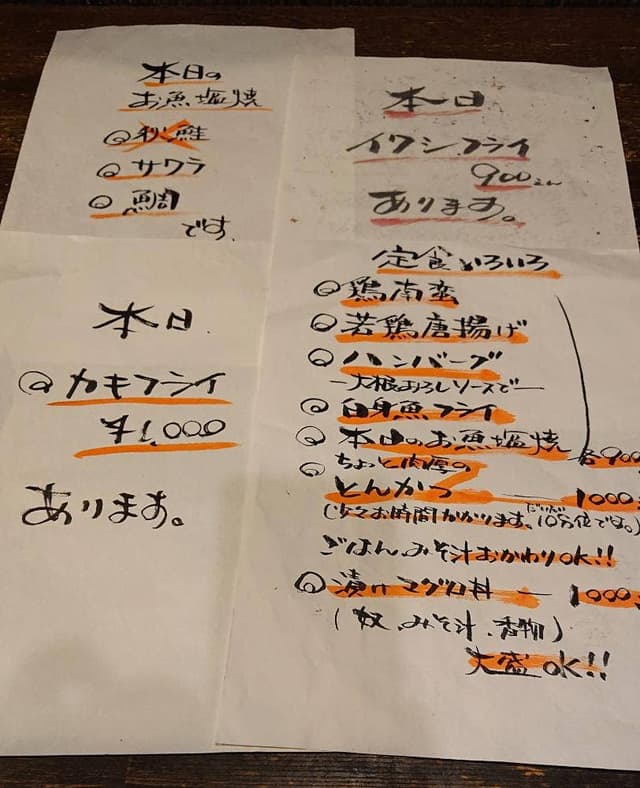 本日の
お魚塩焼
◎秋鮭
◎サワラ
◎鯛
です。
本日
◎カキフライ
¥1,000
あります。
本日
イワシフライ
900えん
あります。
定食いろいろ
◎鶏南蛮
◎若鶏唐揚げ
◎ハンバーグ
―大根おろしソースで―
◎白身魚フライ
◎本日のお魚塩焼 各900
◎ちょっと肉厚の
とんかつ ― 1000
(少々お時間かかります。だいたい10分位です。)
ごはん、みそ汁おかわりOK!!
◎漬けマグロ丼 ― 1000
(奴、みそ汁、香物)
大盛OK!!